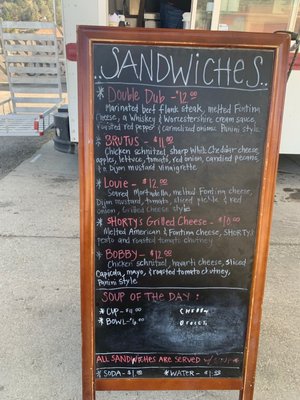 ..SANDWiCHES..
* Double Dub - $12.00
Marinated beef flank steak, melted Fontina
Cheese, a Whiskey & Worcestershire cream sauce,
roasted red pepper & carmelized onions. Panini style
* BRUTUS - $11.00
Chicken schnitzel sharp White Cheddar cheese
apples, lettuce, tomato, red onion, candied pecans,
Dijon mustard vinaigrette
* Louie - $12.00
Seared Mortadella, melted Fontina Cheese,
Dijon mustard, tomato, sliced pickle & red
Onion, Grilled Cheese style
* SHORTY's Grilled Cheese - $10.00
Melted American & Fontina Cheese, SHORTY's
pesto and roasted tomato chutney
* BOBBY - $12.00
Chicken schnitzel, havarti cheese, sliced
Capicola, mayo, & roasted tomato chutney,
Panini style
SOUP OF THE DAY :
* CUP -
* BOWL -
ALL SANDWiCHES ARE SERVED w/
* SODA - * WATER -